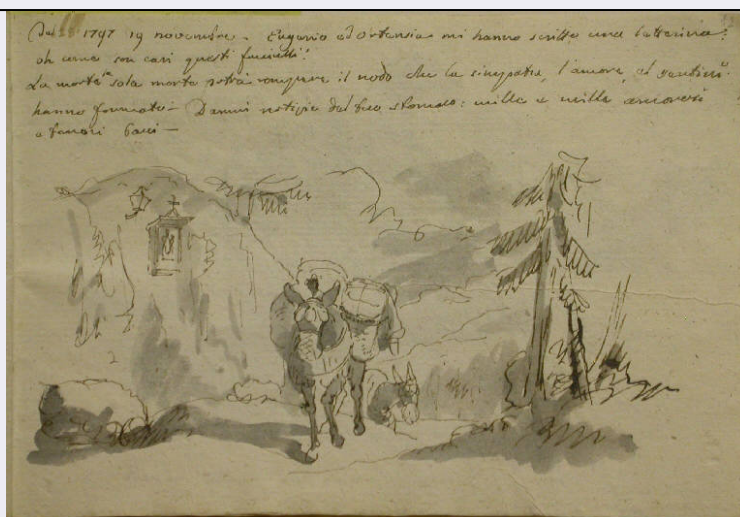 1797 19 novembre. Eugenio ed Ortensia mi hanno scritto una letterina:
oh come son cari questi
La morte sola morte potrà rompere il nodo che la simpatia, l'amore,
hanno formato - Dammi notizie del tuo stomaco: mille e mille amorosi
e teneri baci -